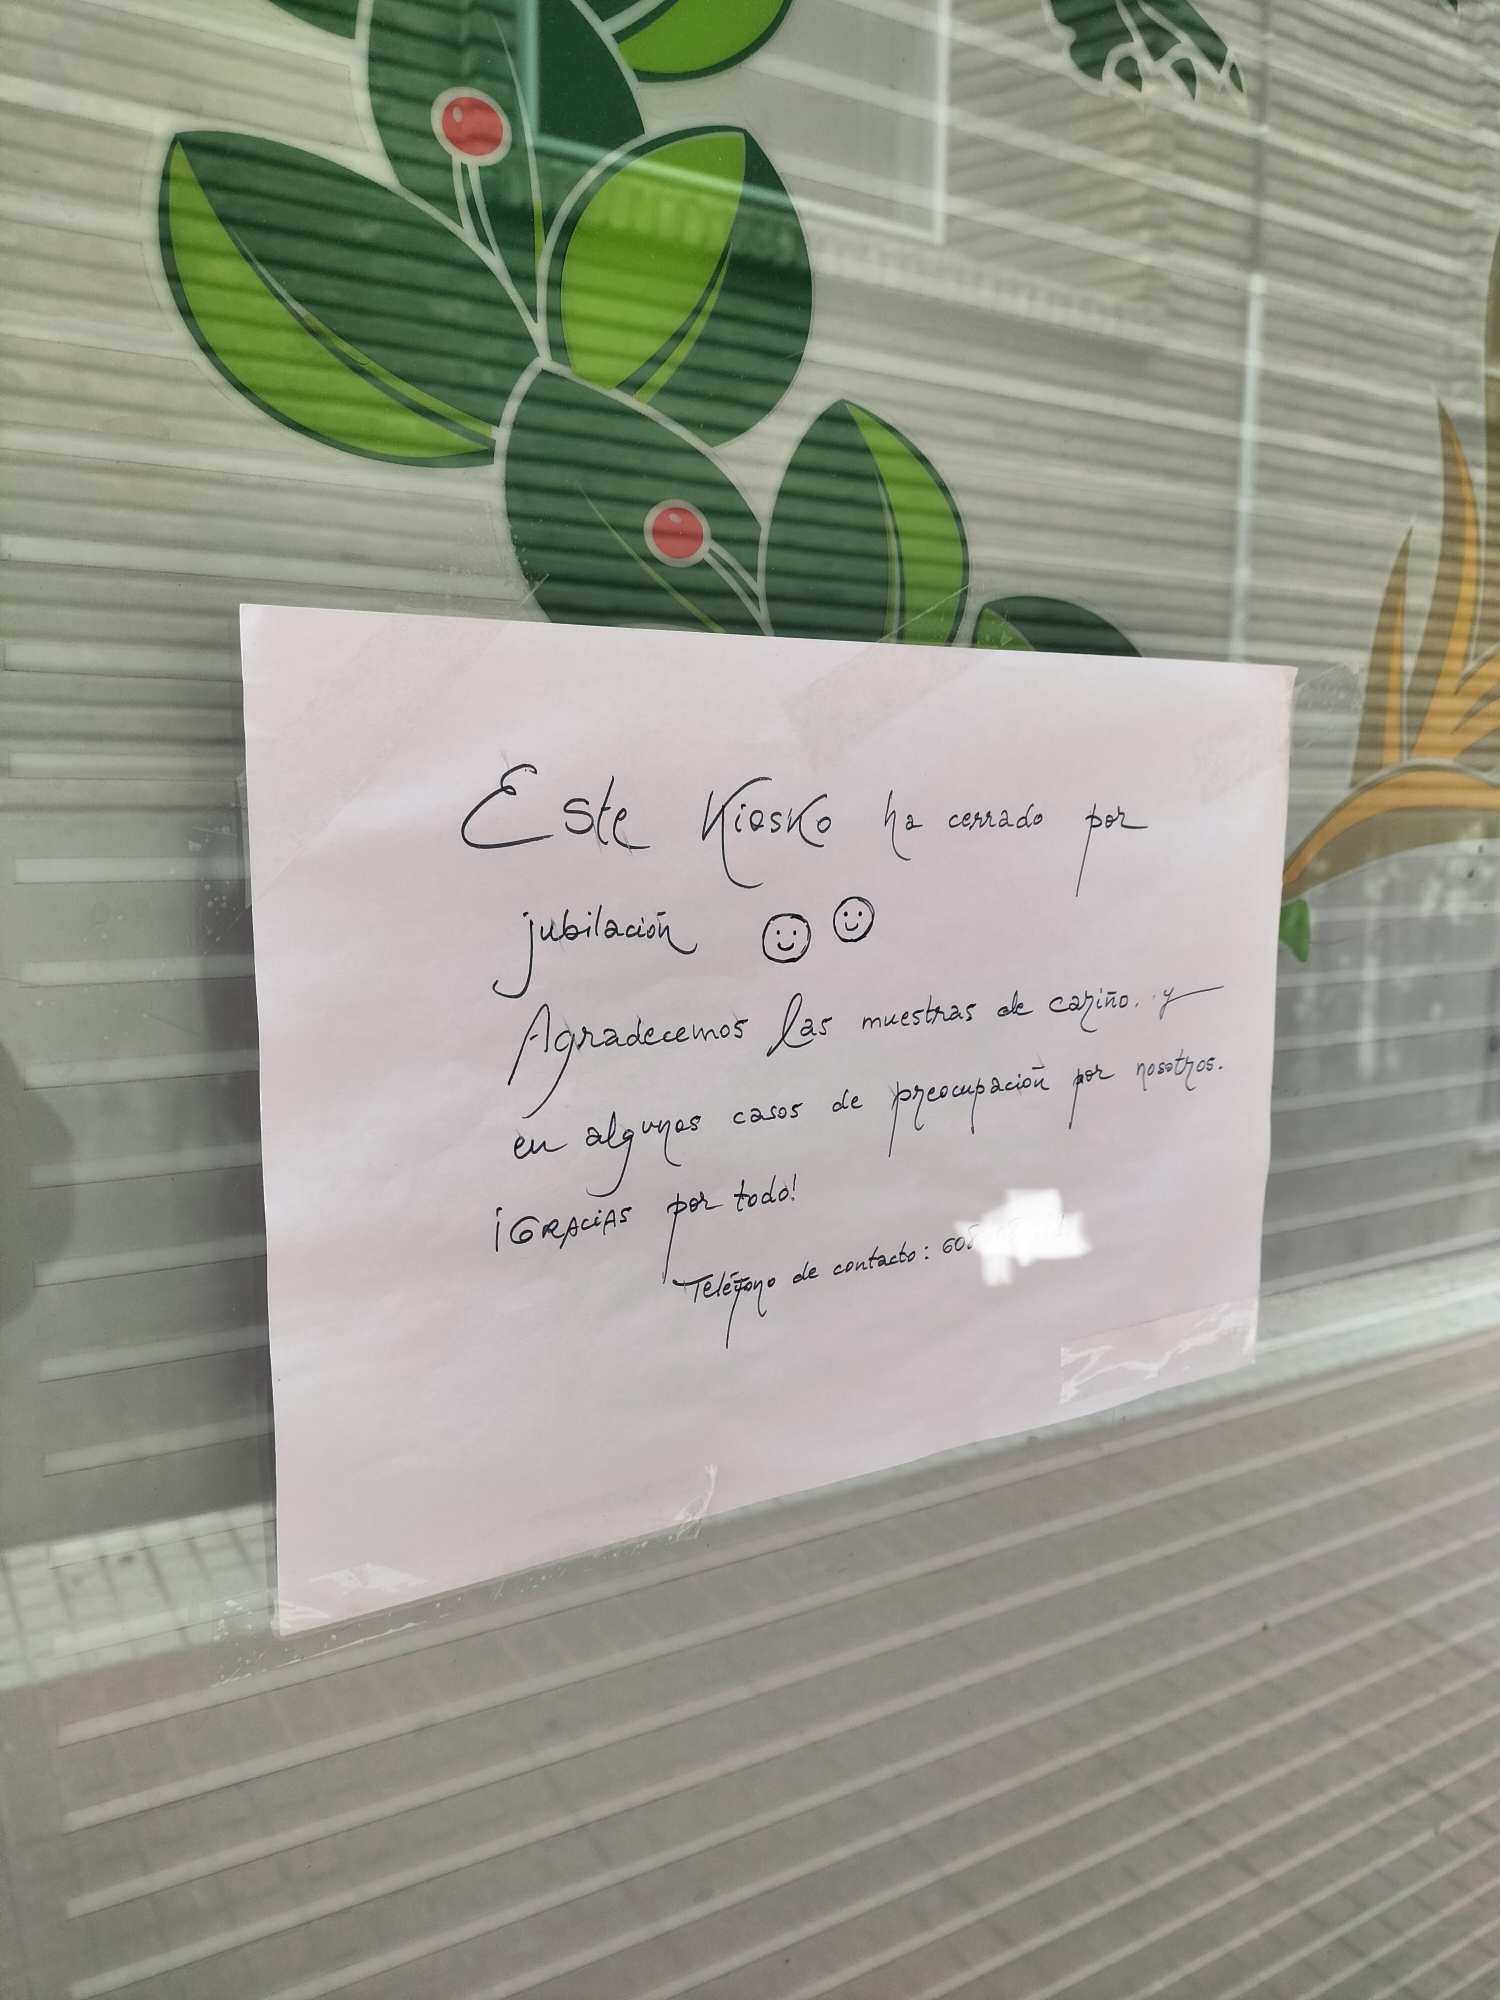 Este Kiosko ha cerrado por
jubilación
Agradecemos las muestras de cariño. y
en algunos casos de preocupación por nosotros.
¡GRACiAS por todo!
Teléfono de contacto: 608